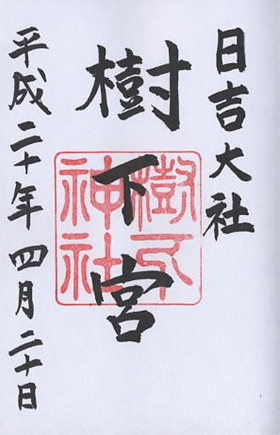 日吉大社
樹下宮
樹下神社
平成二十年四月二十日